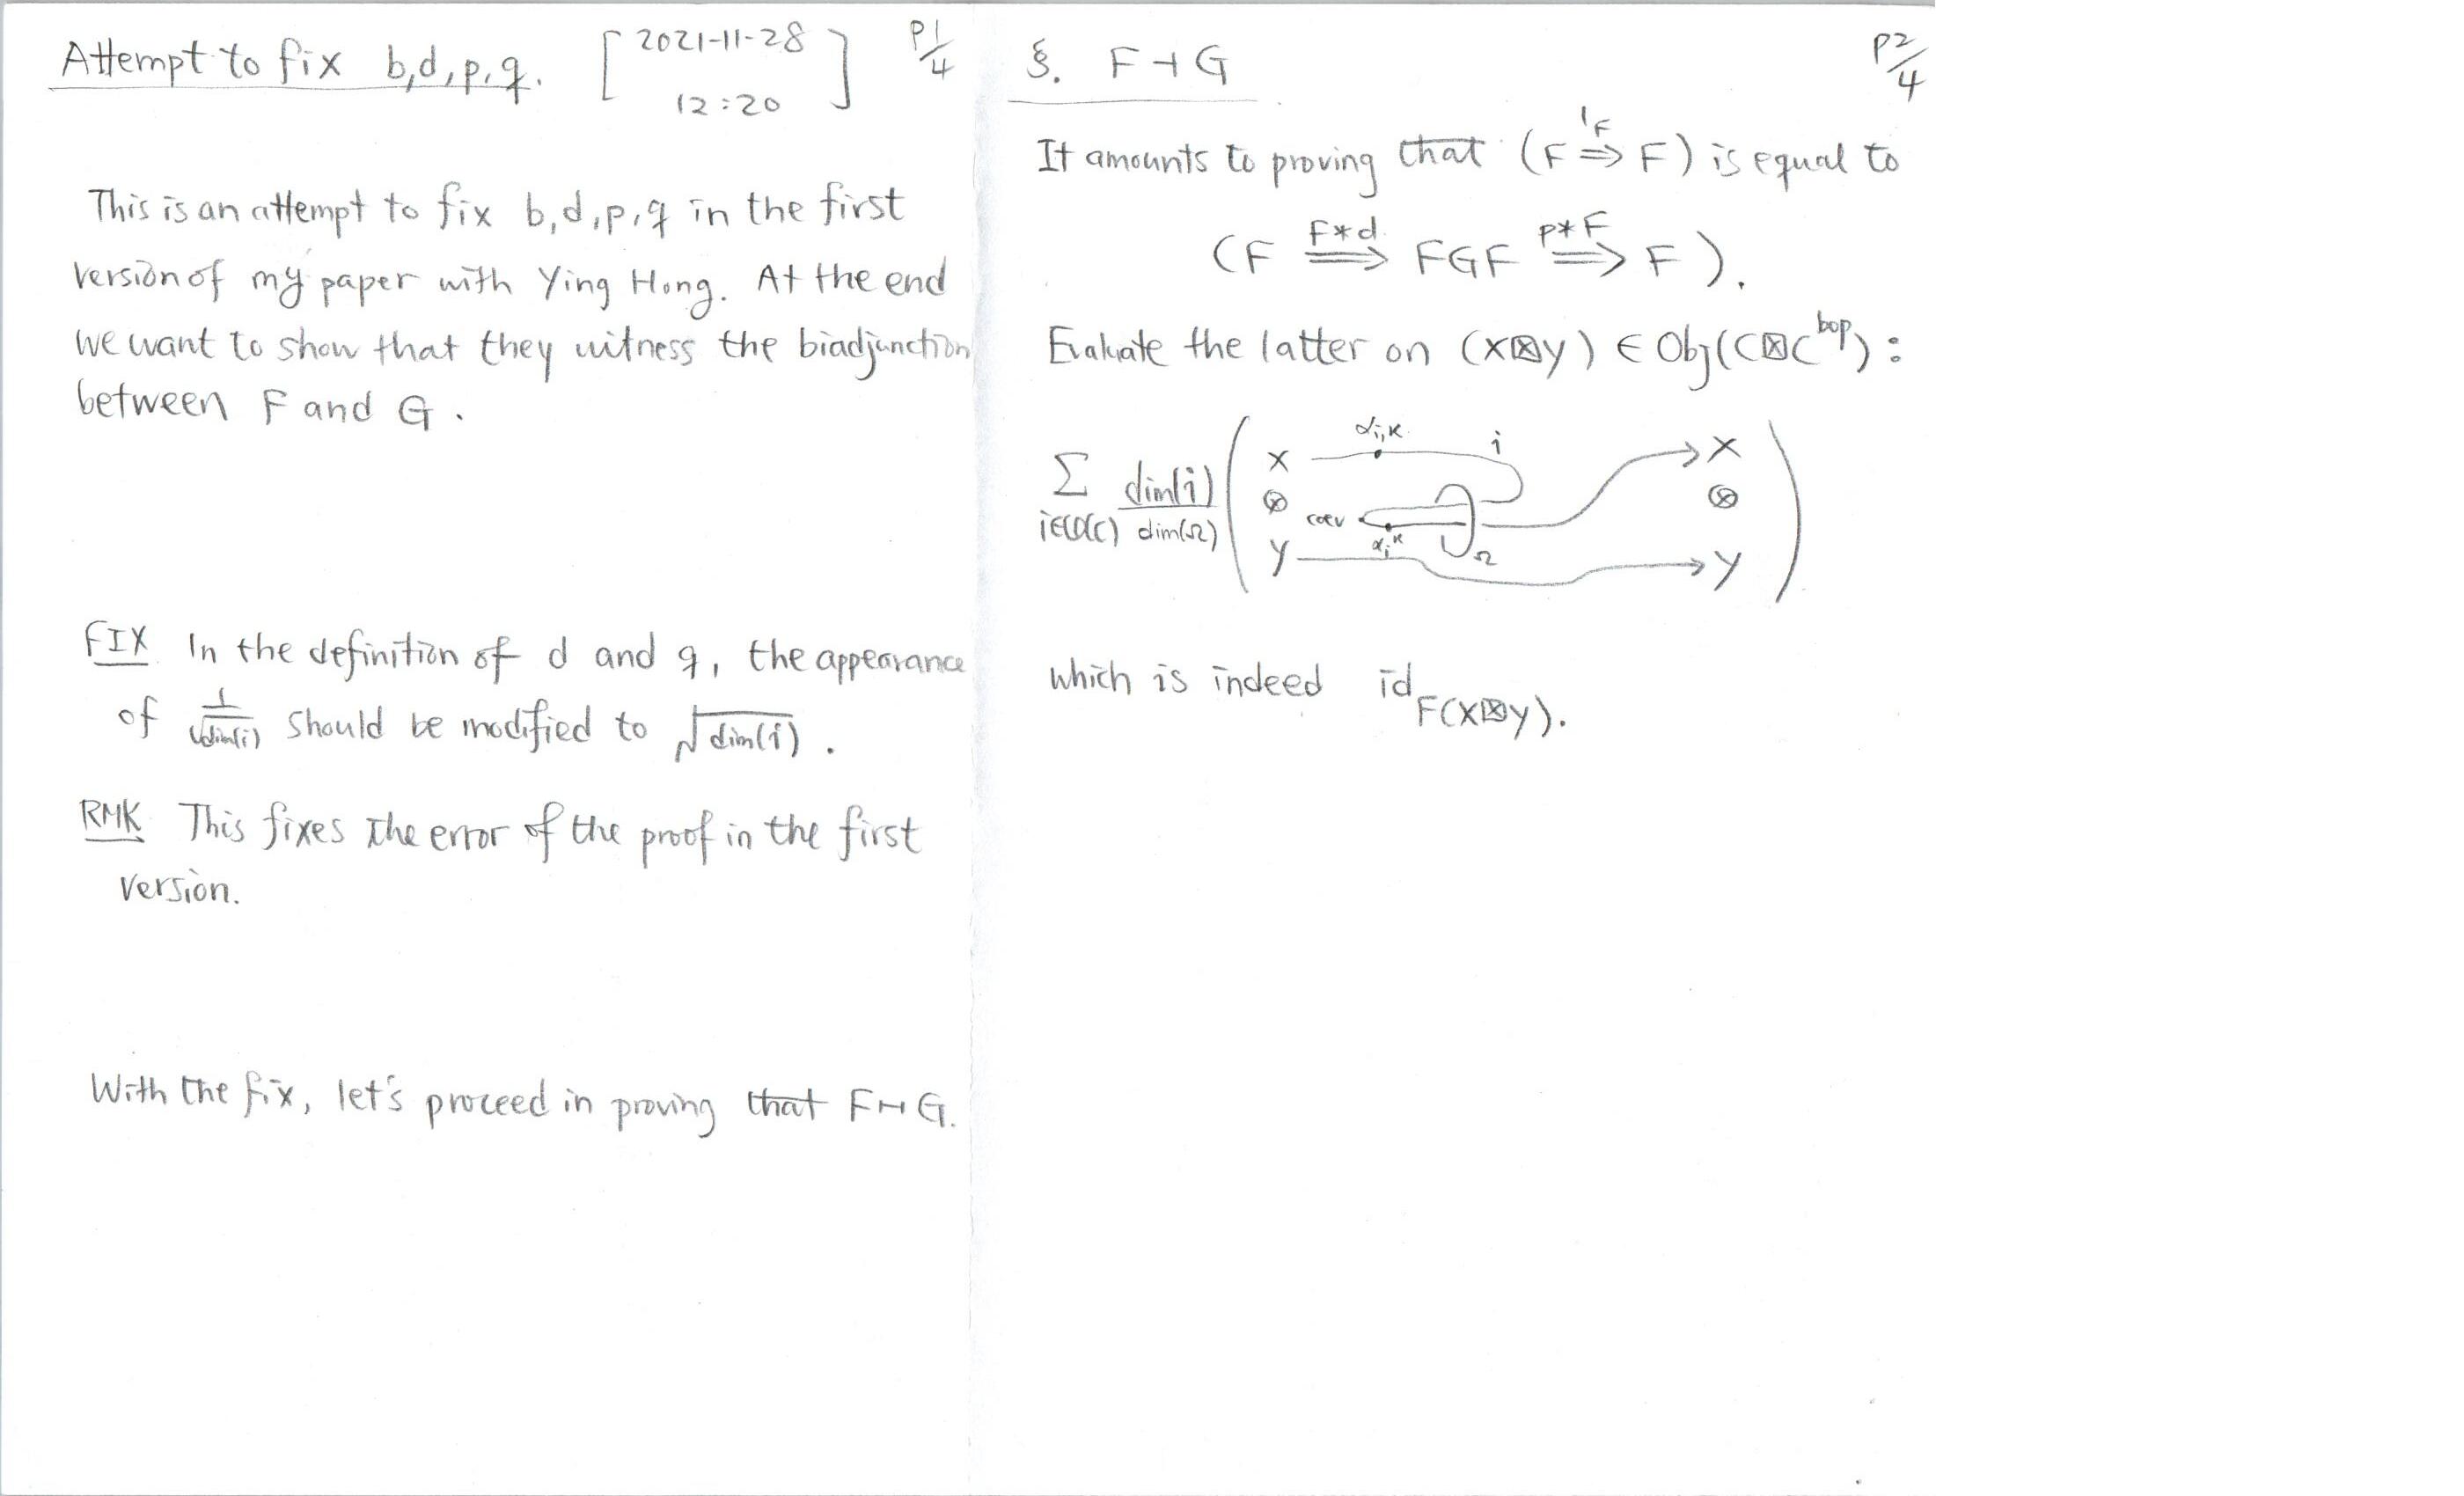 Attempt to fix b,d,p,q. [2021-11-28 12:20] P1/4
This is an attempt to fix b,d,p,q in the first
version of my paper with Ying Hong. At the end
we want to show that they witness the biadjunction
between F and G.
FIX In the definition of d and q, the appearance
of 1/√dim(i) should be modified to √dim(i).
RMK This fixes the error of the proof in the first
version.
With the fix, let's proceed in proving that F⊣G.
§. F⊣G P2/4
It amounts to proving that (F ⇒ F) is equal to
1F
(F ⇒ FGF ⇒ F).
F*d p*F
Evaluate the latter on (X⊠Y) ∈ Obj(C⊠C^bop):
Σ i∈O(C) dim(i)/dim(Ω)
X αi,κ i X
⊗ coev ⊗
Y αi^κ Ω Y
which is indeed id F(X⊠Y).